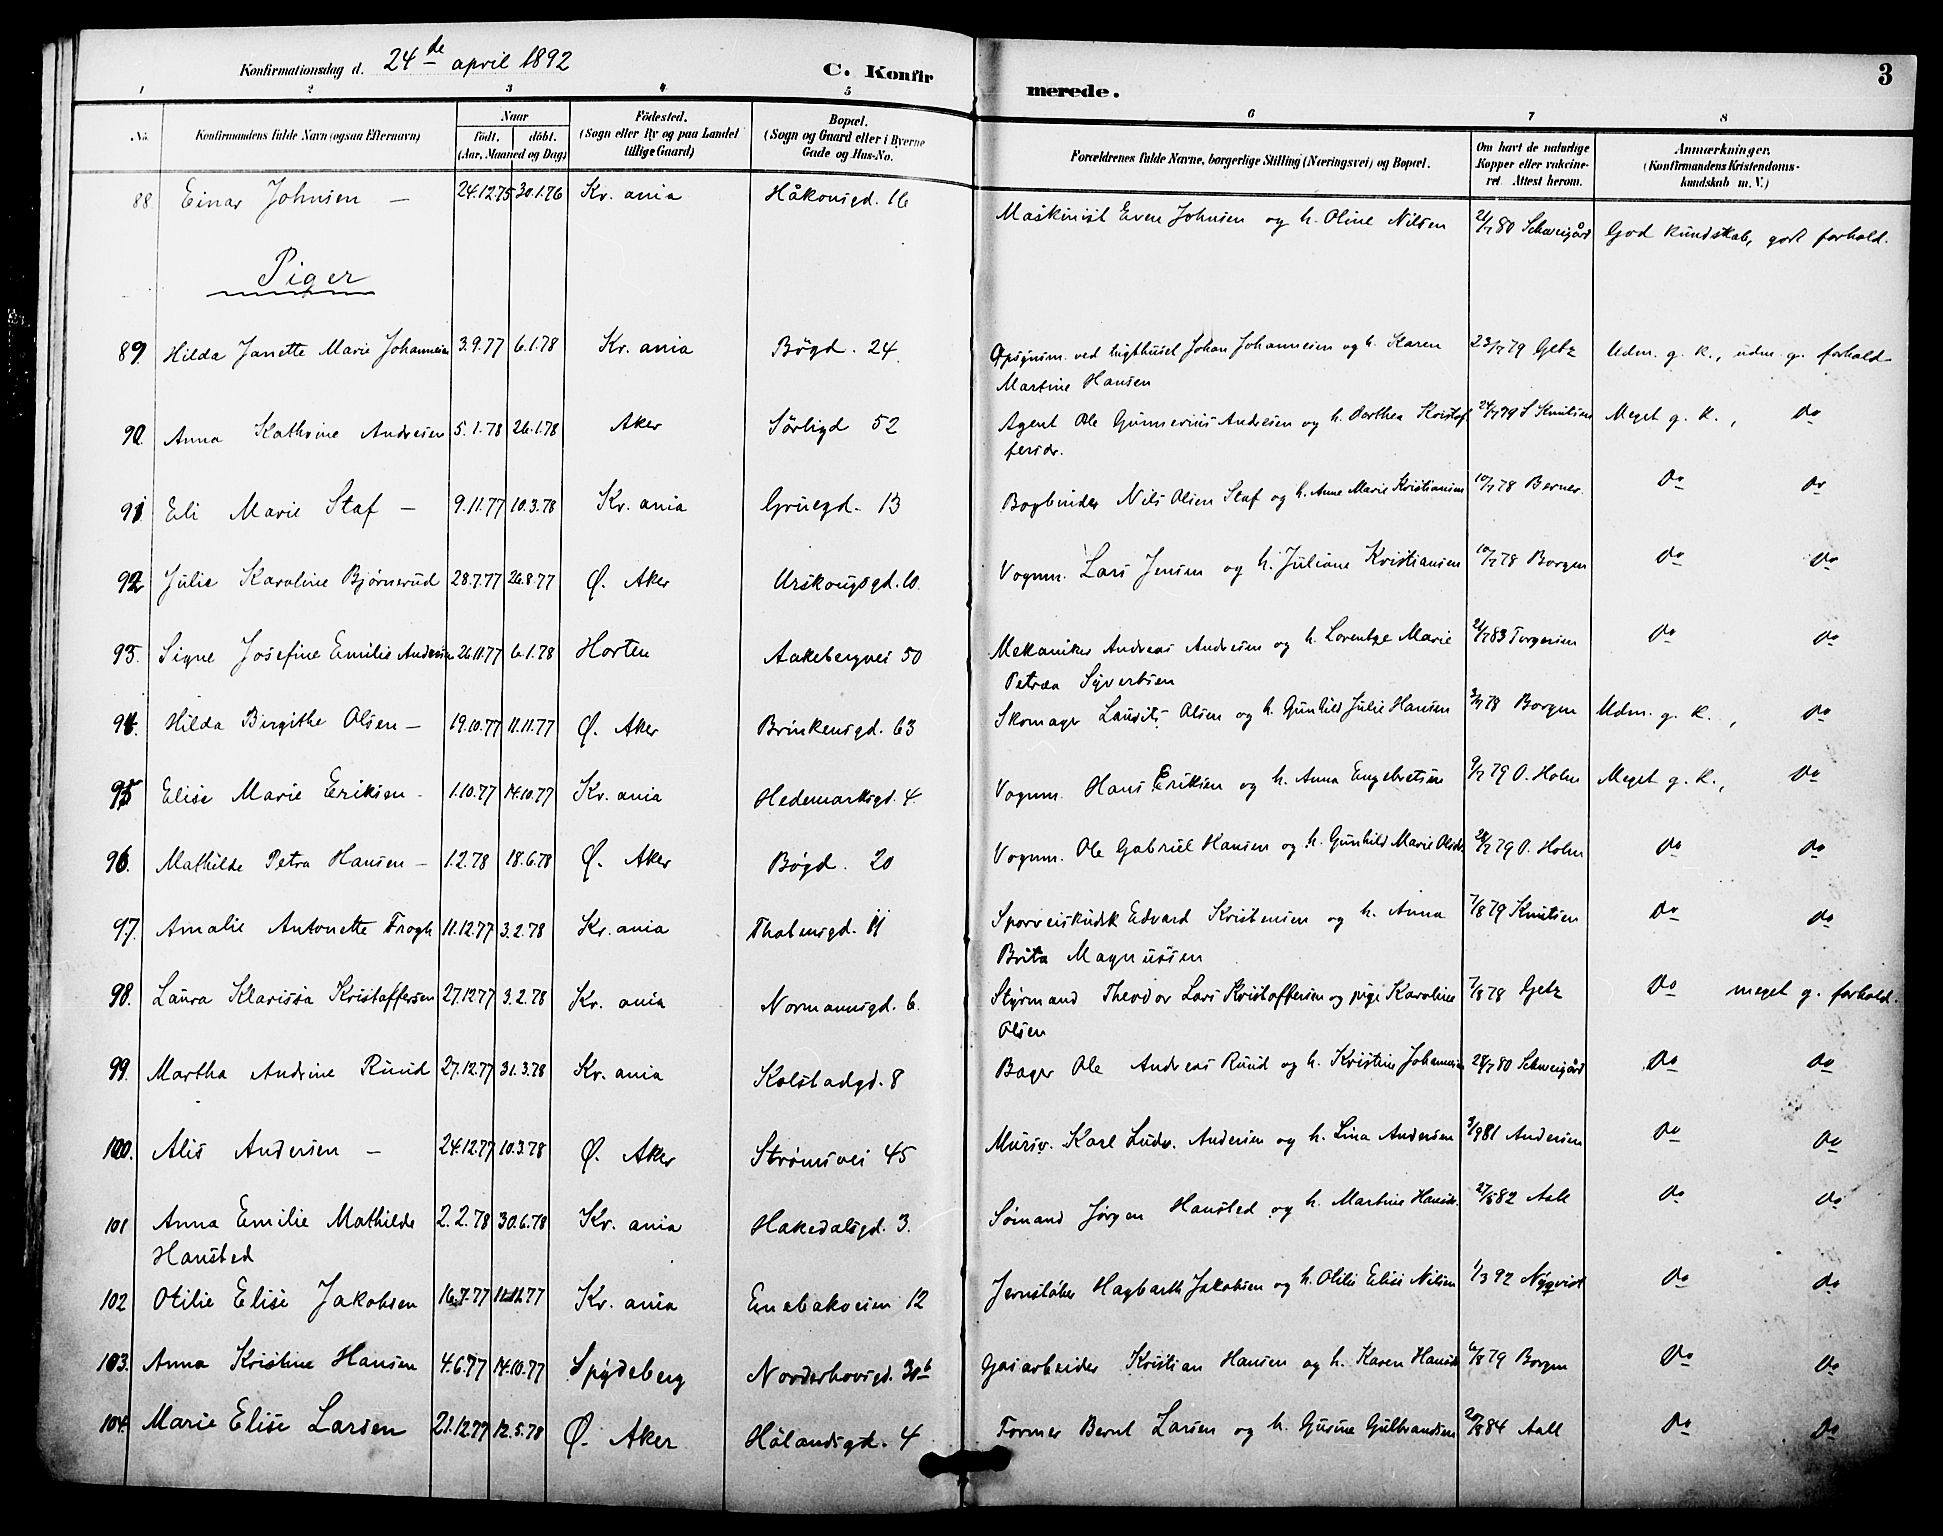 Konfirmationsdag d. 24de april 1892
C. Konfirmerede.
3
1 2 3 4 5 6 7 8
No. Konfirmandens fulde Navn (ogsaa Efternavn) Naar Födt. döbt. (Aar, Maaned og Dag) Födested. (Sogn eller By og paa Landet tillige Gaard) Bopæl. (Sogn og Gaard eller i Byerne Gade og Hus-No. Forældrenes fulde Navne, borgerlige Stilling (Næringsvei) og Bopæl. Om havt de naturlige Kopper eller vaccineret. Attest herom. Anmærkninger. (Konfirmandens Kristendomskundskab m. V.)
88 Einar Johnsen — 24.12.75 30.1.76 Kr. ania Håkonsgd. 16 Maskinist Even Johnsen og h. Oline Nilsen 80 Schweigård God kundskab, godt forhold.
Piger
89 Hilda Janette Marie Johannesen 3.9.77 6.1.78 Kr. ania Bøgd. 24 Opsynsm. ved tugthuset Johan Johannesen og h. Karen 23/7 79 Getz Udm. g. k., udm. g. forhold
Martine Hansen
90. Anna Kathrine Andresen 5.1.78 26.1.78 Aker Sørligd 52 Agent Ole Gunnerius Andresen og h. Dorthea Kristof 24/7 79 S Knutsen Meget g. k., do
fersdr.
91 Eli Marie Staf — 9.11.77 10.3.78 Kr. ania Gruegd. 13 Bogbinder Nils Olsen Staf og h. Anne Marie Kristiansen 10/7 78 Berner do do
92 Julie Karoline Bjørnerud 28.7.77 26.8.77 Ø. Aker Urskougsgd. 10. Vognm. Lars Jensen og h. Juliane Kristiansen 10/7 78 Borgen do do
93. Signe Josefine Emilie Andersen 26.11.77 6.1.78 Horten Aakebergvei 50 Mekaniker Andreas Andresen og h. Lorentze Marie 83 Torgersen do do
Petrea Syvertsen
94. Hilda Birgithe Olsen — 19.10.77 11.11.77 Ø. Aker Brinkensgd. 63 Skomager Lauritz Olsen og h. Gunhild Julie Hansen 78 Borgen Udm. g. k., do
95 Elise Marie Eriksen - 1.10.77 14.10.77 Kr. ania Hedemarksgd. 4 Vognm. Hans Eriksen og h. Anna Engebretsen 9/7 79 O. Holm Meget g. k., do
96. Mathilde Petra Hansen — 1.2.78 18.6.78 Ø. Aker Bøgd. 20 Vognm. Ole Gabriel Hansen og h. Gunhild Marie Olsdr. 79 O. Holm do do
97. Amalie Antonette Trogh 11.12.77 3.2.78 Kr. ania Thalensgd. 11 Sporveiskudsk Edvard Kristensen og h. Anna 7/8 79 Knutsen do do
Brita Magnussen
98. Laura Klarissa Kristoffersen 27.12.77 3.2.78 Kr. ania Normannsgd. 6. Styrmand Theodor Lars Kristoffersen og pige Karoline 7/8 78 Getz do meget g. forhold.
Olsen
99. Martha Andrine Ruud 27.12.77 31.3.78 Kr. ania Kolstadgd. 8 Bager Ole Andreas Ruud og h. Kristine Johannesen 28/7 80 Schweigård do do
100. Alis Andersen — 24.12.77 10.3.78 Ø. Aker Strømsvei 45 Mursv. Karl Ludv. Andersen og h. Lina Andersen 3/9 81 Andersen do do
101 Anna Emilie Mathilde 2.2.78 30.6.78 Kr. ania Hakedalsgd. 3. Sømand Jørgen Hansted og h. Martine Hansdr. 27/8 82 Aall do do
Hansted
102 Otilie Elise Jakobsen 16.7.77 77 Kr. ania Enebakveien 12 Jernstøber Hagbarth Jakobsen og h. Otilie Elise Nilsen 1/3 92 Nyqvist do do
103. Anna Kristine Hansen 4.6.77 14.10.77 Spydeberg Norderhovsgd. 30b Gasarbeider Kristian Hansen og h. Karen Hansdr 6/8 79 Borgen do do
104. Marie Elise Larsen 21.12.77 12.5.78 Ø. Aker Hølandsgd. 4 Former Bernt Larsen og h. Gusine Gulbrandsen 84 Aall do do